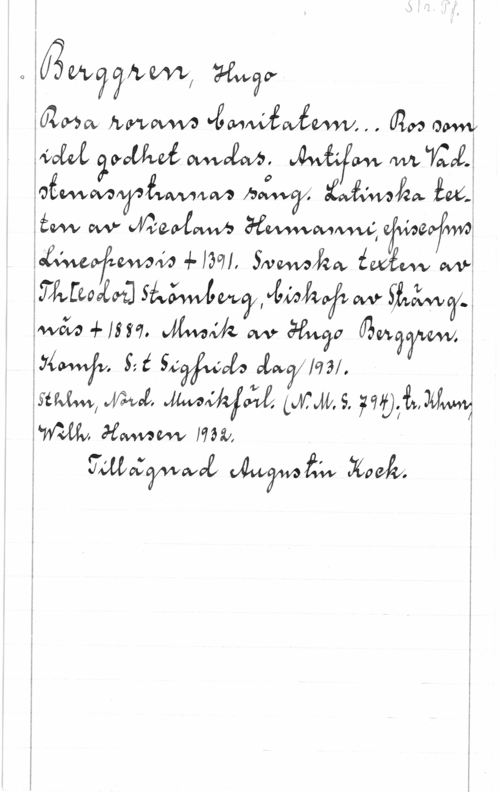 Str. Pf.
Berggren, Hugo
Rosa rorans bonitatem... Ros som
idel godhet andas. Antifon ur Vad-
stenasystrarnas sång. Latinska tex-
ten av Nicolaus Hermanni, episcopus
Lincopensis + 1391. Svenska texten av
Th[eodor] Strömberg, biskop av Sträng-
näs + 1889. Musik av Hugo Berggren.
Komp. S:t Sigfrids dag 1931.
Sthlm, Nord. Musikförl. (N.M.S. 794); tr. Khvn,
Wilh. Hansen 1932.
Tillägnad Augustin Kock.